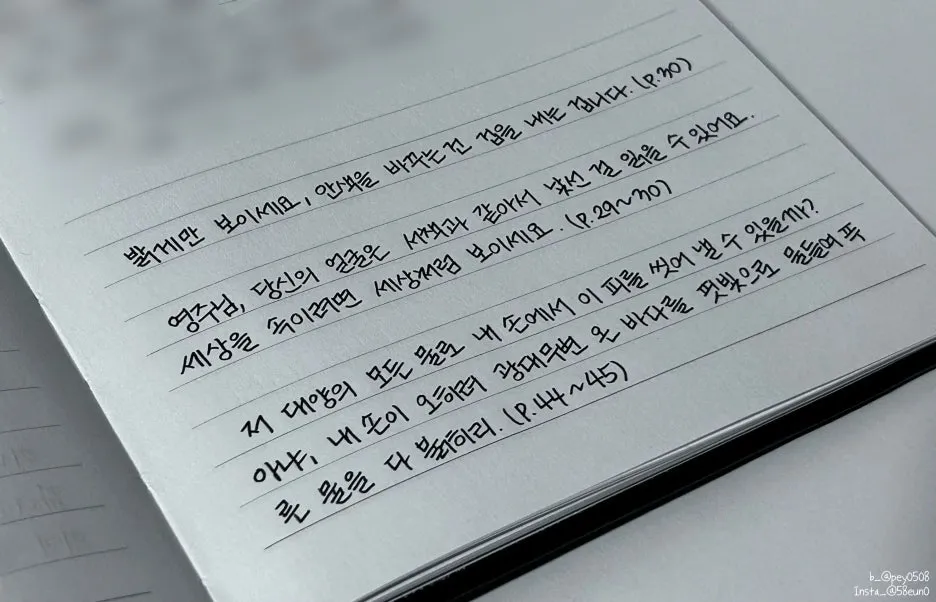 밝게만 보이세요, 안색을 바꾸는건 겁을 내는 겁니다. (P.30)
영주님, 당신의 얼굴은 서책과 같아서 낯선 걸 읽을 수 있어요.
세상을 속이려면 세상처럼 보이세요. (P.29~30)
저 대양의 모든 물로 내 손에서 이 피를 씻어 낼 수 있을까?
아냐, 내 손이 오히려 광대무변 온 바다를 핏빛으로 물들여 푸
른 물을 다 붉히리. (P.44~45)
b_@pey0508
Insta_@58eun0